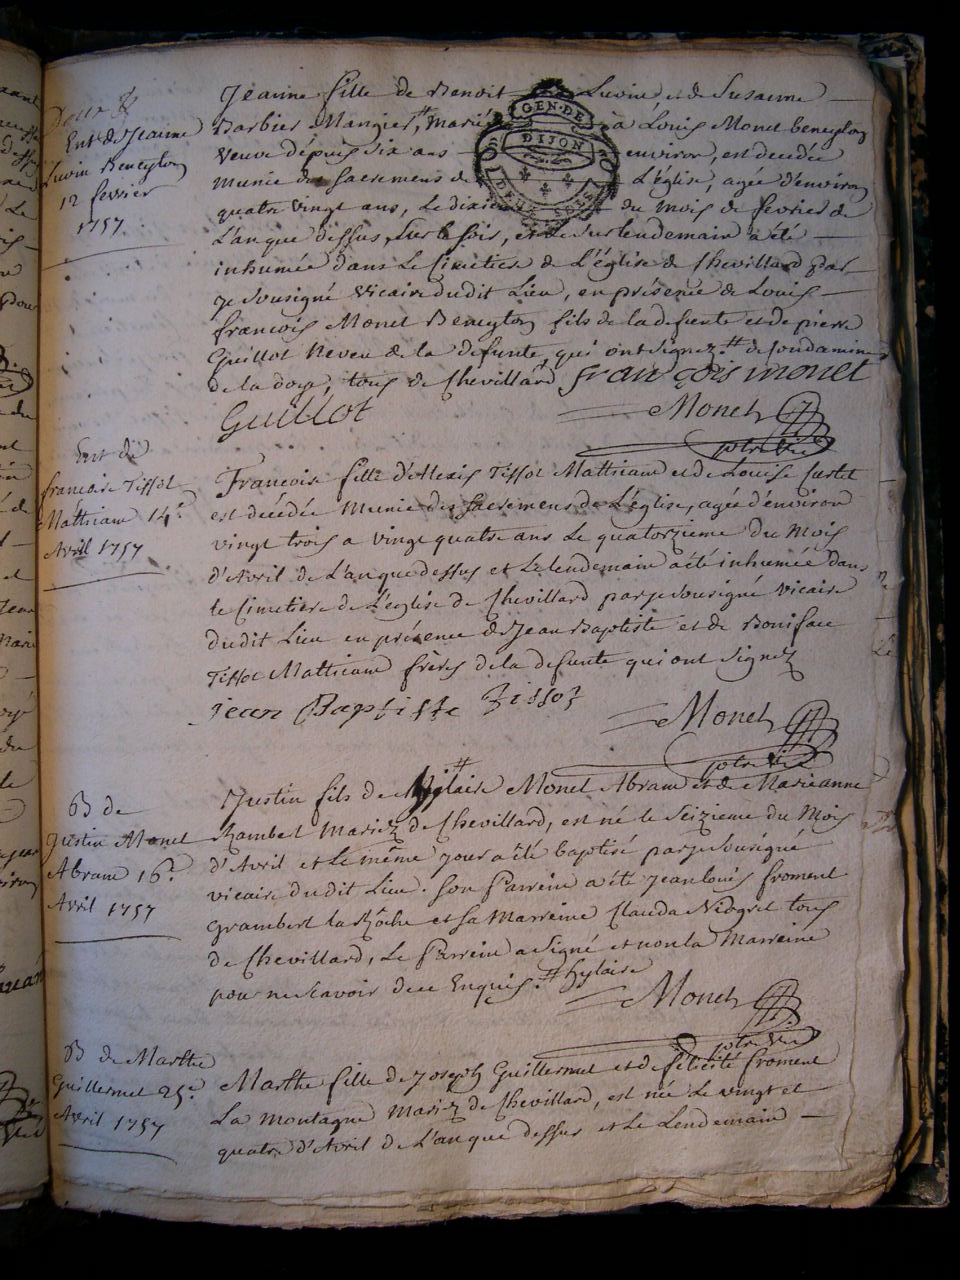 Jeanne fille de Benoit Luvin et de Susanne
Barbier Mangier,# mariée à Louis Monet beneyton
veuve depuis six ans environ, est decedée
munie des sacremens de L'église, agée d'environ
quatre vingt ans, Le dixieme du mois de fevrier de
L'an que dessus, sur le soir, et le surlendemain a été
inhumée dans Le Cimetiere de L'église de Chevillard par
je sousigné vicaire dudit Lieu, en présence de Louis
francois Monet Beneyton fils de la defunte et de pierre
Guillot neveu de la defunte, qui ont signez.# de
de la doye, tous de Chevillard françois monet
Guillot Monet
ptre vic
GEN. DE
DIJON
DEUX SOLS
Ent. de Jeanne
Luvin Beneyton
12 fevrier
1757
Ent de
francoise Tissot
Mathiand 14e
Avril 1757
Francoise fille d'Alexis Tissot Mathiand et de Louise
est decédée Munie des sacremens de L'église, agée d'environ
vingt trois a vingt quatre ans Le quatorzieme du Mois
d'Avril de L'an que dessus et Le lendemain a été inhumée dans
le Cimetiere de L'église de Chevillard par je sousigné vicaire
dudit Lieu en présence de Jean Baptiste et de Boniface
Tissot Mathiand frères de la defunte qui ont signez
jean Baptiste Tissot Monet
ptre vic
B de
Justin Monet
Abram 16e
Avril 1757
Justin fils de # Monet Abram et de Marieanne
Rambert Mariez de Chevillard, est né le seizieme du Mois
d'Avril et le même jour a été baptisé par je sousigné
vicaire dudit Lieu. son Parrein a été Jean louis froment
Grambert la Roche et sa Marreine Clauda Niogret tous
de Chevillard, Le Parrein a signé et non la Marreine
pour ne scavoir de ce Enquis. # hylaire
Monet
ptre vic
B de Marthe
Guillermet 25e
Avril 1757
Marthe fille de Joseph Guillermet et de félicité froment
La montagne Mariez de Chevillard, est née Le vingt et
quatre d'Avril de L'an que dessus et Le Lendemain